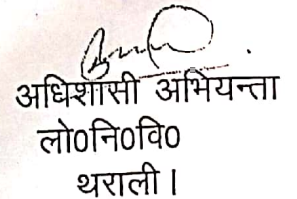 अधिशासी अभियन्ता
लो०नि०वि०
थराली।